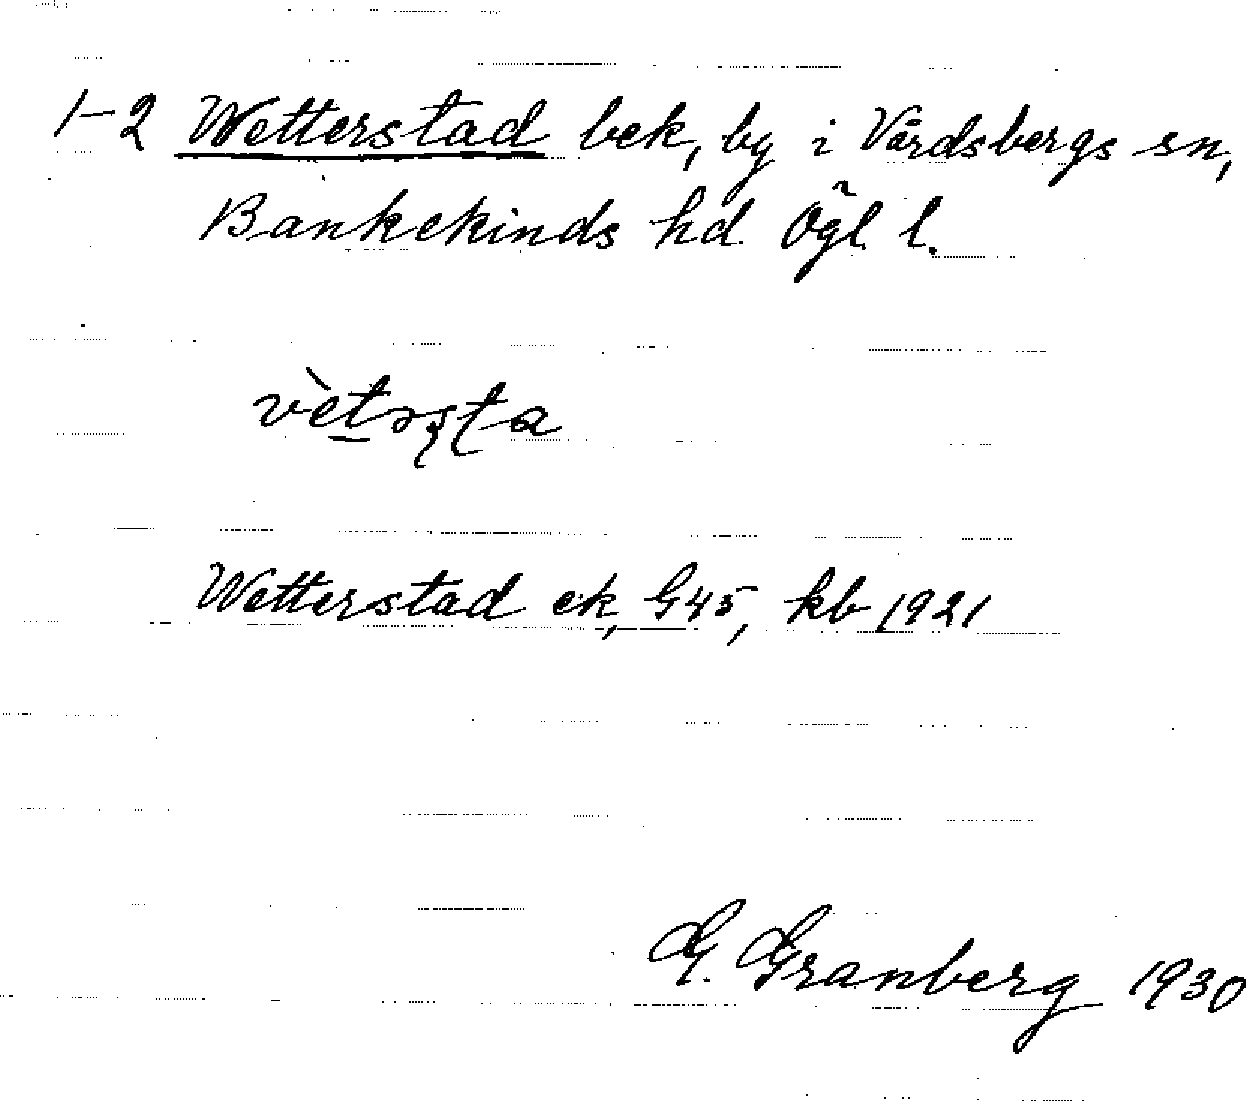 1-2 Wetterstad bek, by i Vårdsbergs sn,
Bankekinds hd Ögl l.
vètərsta
Wetterstad ek, G45, kb 1921
G. Granberg 1930